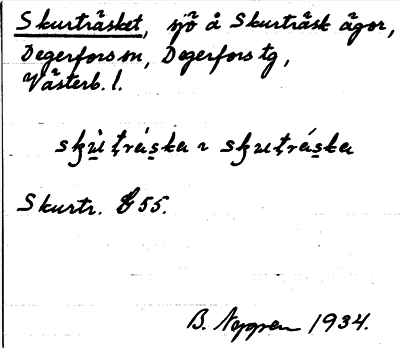 Skurträsket, sjö å Skurträsk ägor,
Degerfors sn, Degerfors tg,
Västerb. l.
skùtráska ~ skutráska
Skurtr. 55.
B. Nygren 1934.